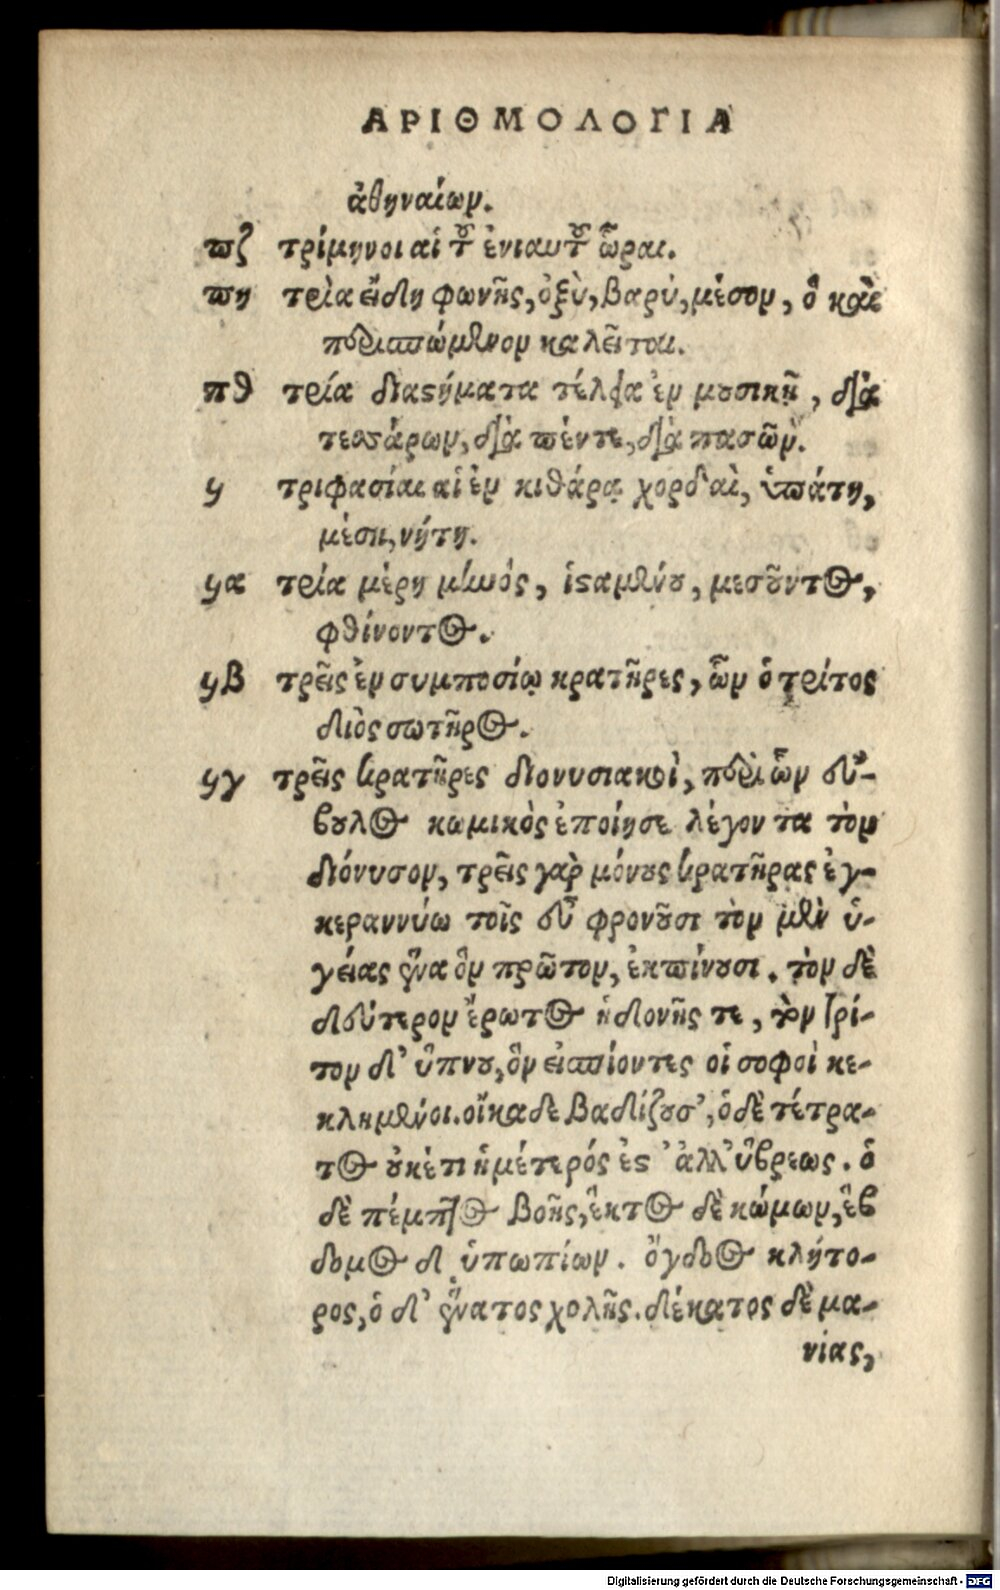 ΑΡΙΘΜΟΛΟΓΙΑ
ἀθηναίων.
πζ τρίμηνοι αἱ τοῦ ἐνιαυτοῦ ὧραι.
πη τρία εἴδη φωνῆς, ὀξὺ, βαρὺ, μέσον, ὃ καὶ
περισπώμενον καλεῖται.
πθ τρία διαστήματα τέλεια ἐν μουσικῇ, διὰ
τεσσάρων, διὰ πέντε, διὰ πασῶν.
ϟ τριφασίαι αἱ ἐν κιθάρᾳ χορδαὶ, ὑπάτη,
μέση, νήτη.
ϟα τρία μέρη μηνός, ἱσταμένου, μεσοῦντος,
φθίνοντος.
ϟβ τρεῖς ἐν συμποσίῳ κρατῆρες, ὧν ὁ τρίτος
διὸς σωτῆρος.
ϟγ τρεῖς κρατῆρες διονυσιακοὶ, περὶ ὧν εὔ-
βουλος κωμικὸς ἐποίησε λέγοντα τὸν
διόνυσον, τρεῖς γὰρ μόνους κρατῆρας ἐγ-
κεραννύω τοῖς εὖ φρονοῦσι τὸν μὲν ὑ-
γείας ἕνα ὃν πρῶτον, ἐκπίνουσι. τὸν δὲ
δεύτερον ἔρωτος ἡδονῆς τε, τὸν τρί-
τον δ' ὕπνου, ὃν εἰσπίοντες οἱ σοφοὶ κε-
κλημένοι. οἴκαδε βαδίζουσ', ὁ δὲ τέτρα-
τος οὐκέτι ἡμέτερός ἐστ' ἀλλ' ὕβρεως. ὁ
δὲ πέμπτος βοῆς, ἕκτος δὲ κώμων, ἕβ
δομος δ ὑπωπίων. ὄγδοος κλήτο-
ρος, ὁ δ' ἔννατος χολῆς. δέκατος δὲ μα-
νίας,
Digitalisierung gefördert durch die Deutsche Forschungsgemeinschaft - DFG